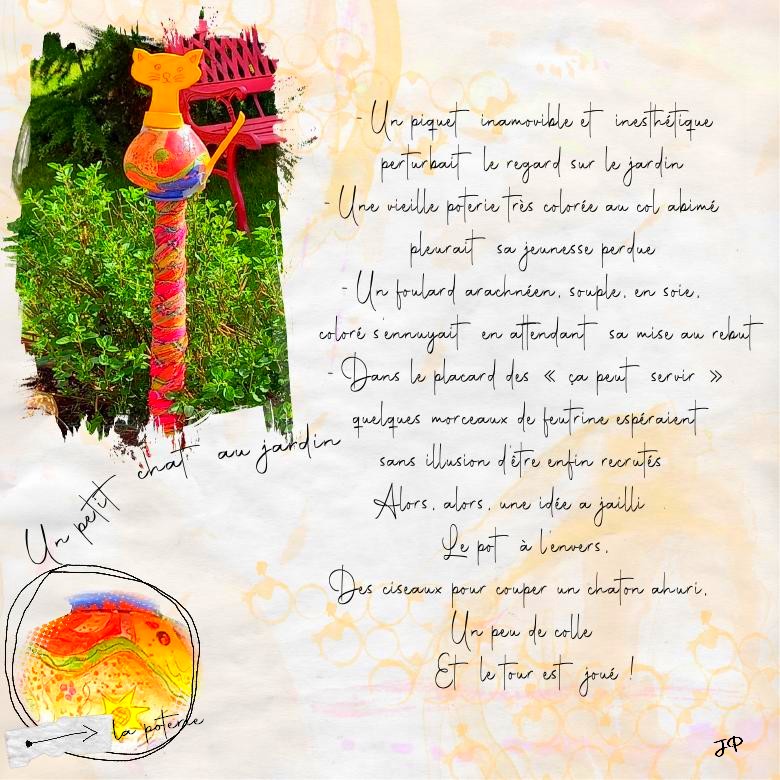 - Un piquet inamovible et inesthétique
perturbait le regard sur le jardin
- Une vieille poterie très colorée au col abimé
pleurait sa jeunesse perdue
- Un foulard arachnéen, souple, en soie,
coloré s'ennuyait en attendant sa mise au rebut
- Dans le placard des « ça peut servir »
quelques morceaux de feutrine espéraient
sans illusion d'être enfin recrutés
Alors, alors, une idée a jailli
Le pot à l'envers,
Des ciseaux pour couper un chaton ahuri,
Un peu de colle
Et le tour est joué !
Un petit chat au jardin
la poterie
JP